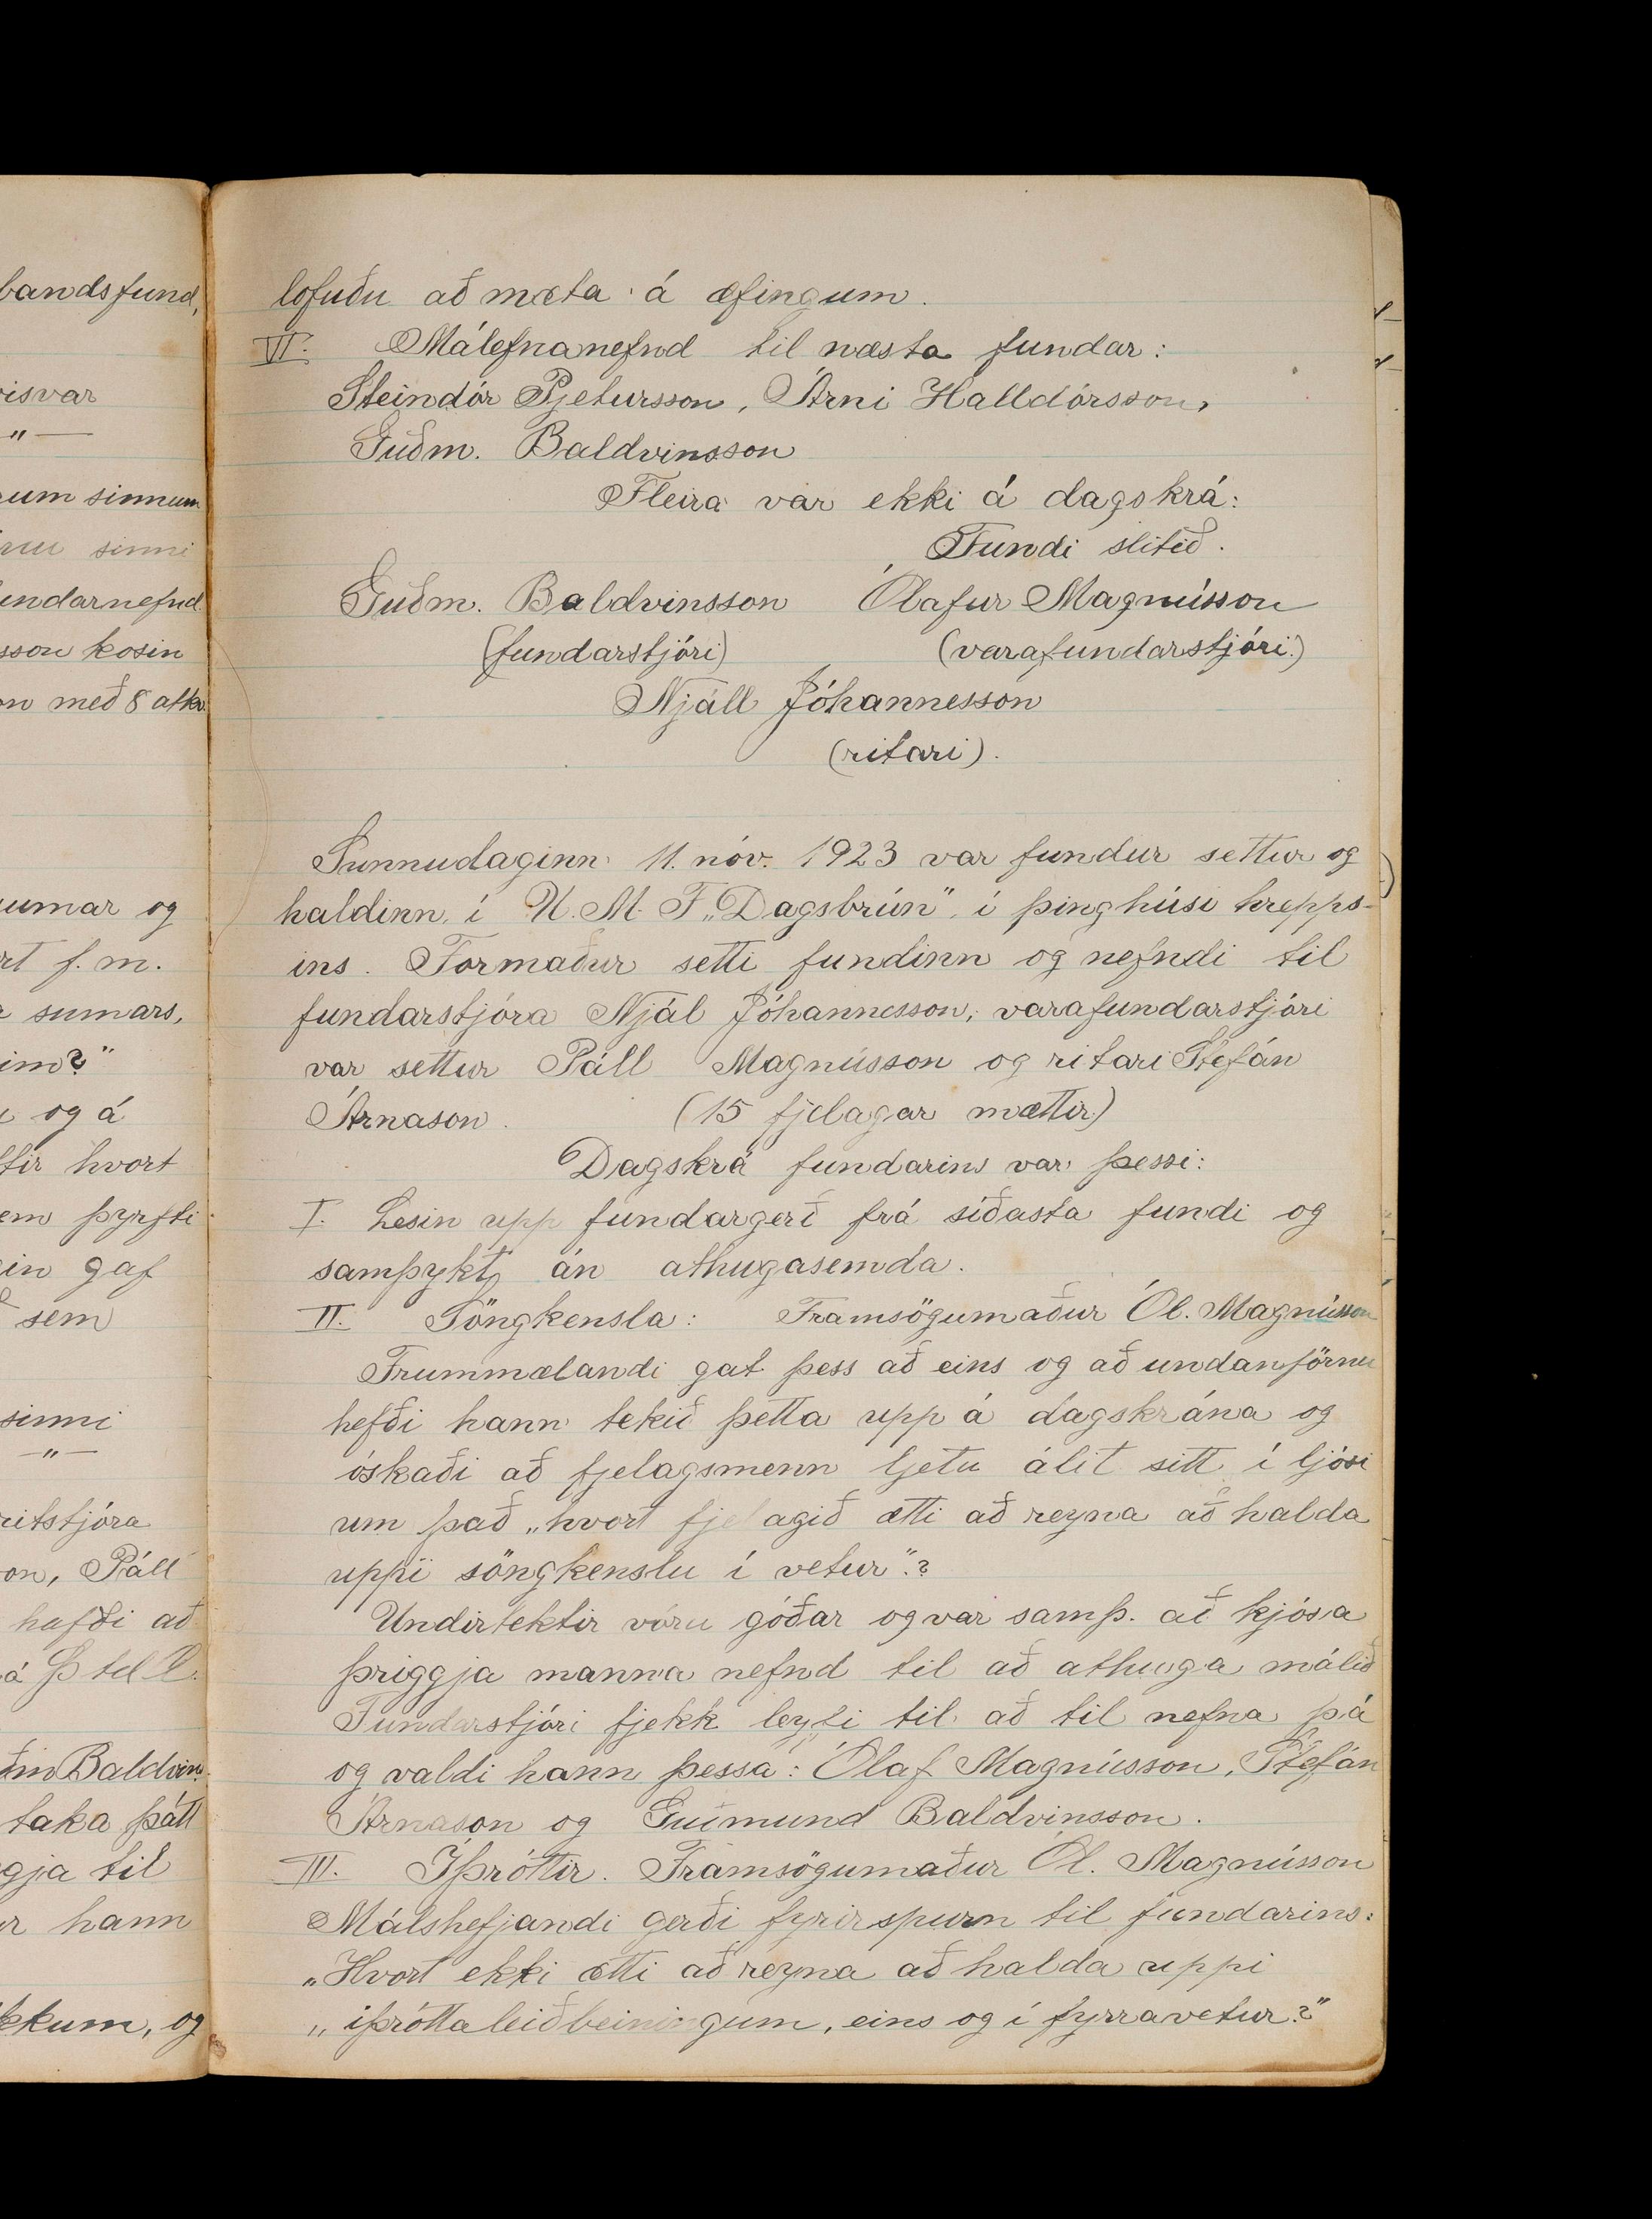 bandsfund,
visvar
— " —
um sinnum
sinni
endarnefnd
sson kosin
on með 8 atkv.
umar og
rt f. m.
sumars,
im?"
og á
ftir hvort
em þyrfti
in gaf
sem
sinni
— " —
ritstjóra
on, Páll
hafði að
á
ðm Baldvins
taka þátt
gja til
r hann
ekkum, og
lofuðu að mæta á æfingum.
VI. Málefnanefnd til næsta fundar:
Steindór Pjetursson, Árni Halldórsson,
Guðm. Baldvinsson
Fleira var ekki á dagskrá:
Fundi slitið.
Guðm. Baldvinsson Ólafur Magnússon
(fundarstjóri) (varafundarstjóri.)
Njáll Jóhannesson
(ritari).
Sunnudaginn 11. nóv. 1923 var fundur settur og
haldinn í U. M. F. „Dagsbrún" í þinghúsi hrepps-
ins. Formaður setti fundinn og nefndi til
fundarstjóra Njál Jóhannesson, varafundarstjóri
var settur Páll Magnússon og ritari Stefán
Árnason. (15 fjelagar mættir.)
Dagskrá fundarins var þessi:
I. Lesin upp fundargerð frá síðasta fundi og
samþykt, án athugasemda.
II. Söngkensla: Framsögumaður Ól. Magnússon
Frummælandi gat þess að eins og að undanförnu
hefði hann tekið þetta upp á dagskrána og
óskaði að fjelagsmenn ljetu álit sitt í ljósi
um það „hvort fjelagið ætti að reyna að halda
uppi söngkenslu í vetur"?
Undirtektir vóru góðar og var samþ. að kjósa
þriggja manna nefnd til að athuga málið
Fundarstjóri fjekk leyfi til að til nefna þá
og valdi hann þessa: Ólaf Magnússon, Stefán
Árnason og Guðmund Baldvinsson.
III. Íþróttir. Framsögumaður Ól. Magnússon
Málshefjandi gerði fyrirspurn til fundarins:
„Hvort ekki ætti að reyna að halda uppi
„íþróttaleiðbeiningum, eins og í fyrravetur?"